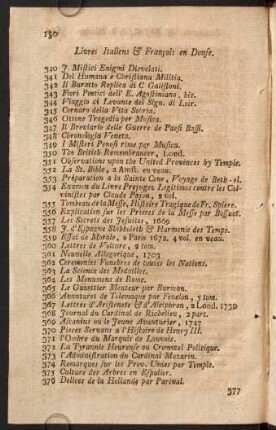 130
Livres Italiens & François en Douse.
340 I. Mistici Enigmi Disvelati.
341 Del Humana e Christiana Militia.
342 Il Buratto Replica di C. Galistoni.
343 Fiori Poetici dell' E. Agostiniano, bis.
344 Viaggio di Levante del Sign. di Loir.
345 Cornaro della Vita Sobria.
346 Ottime Tragedia per Musica.
347 Il Breviario delle Guerre de Paesi Bassi.
348 Coronologia Veneta.
349 I Misteri Penosi rime par Musica.
350 The British Remembrancer, Lond.
351 Observations upon the United Provinces by Temple.
352 La St. Bible, a Amst. en veau.
353 Préparation a la Sainte Cene, Voyage de Beth-el.
354 Examen du Livre Prejugez Legitimes contre les Calvinistes par Claude Pajon, 2 vol.
355 Tombeau de la Messe, Histoire Tragique de Fr. Spiere.
356 Explication sur les Prieres de la Messe par Bossuet.
357 Les Secrets des Jesuites, 1669
358 J. d'Espagne Shibboleth & Harmonie des Temps.
359 Essai de Morale, a Paris 1672. 4 vol. en veau.
360 Lettres de Voiture, 2 tom.
361 Nouvelle Allegorique, 1703
362 Ceremonies Funebres de toutes les Nations.
363 La Science des Médailles.
364 Les Monumens de Rome.
365 Le Gazettier Menteur par Burman.
366 Avantures de Telemaque par Fenelon, 3 tom.
367 Lettres d'Aristenete & d'Alciphron, a Lond. 1739
368 Journal du Cardinal de Richelieu, 2 part.
369 Ascanius ou le Jeune Avanturier, 1747
370 Pieces Servans a l'Histoire de Henry III.
371 l'Ombre du Marquis de Louvois.
372 La Tyrannie Heureuse ou Cromwel Politique.
373 l'Administration du Cardinal Mazarin.
374 Remarques sur les Prov. Unies par Temple.
375 Culture des Arbres en Espalier.
376 Delices de la Hollande par Parival.
377